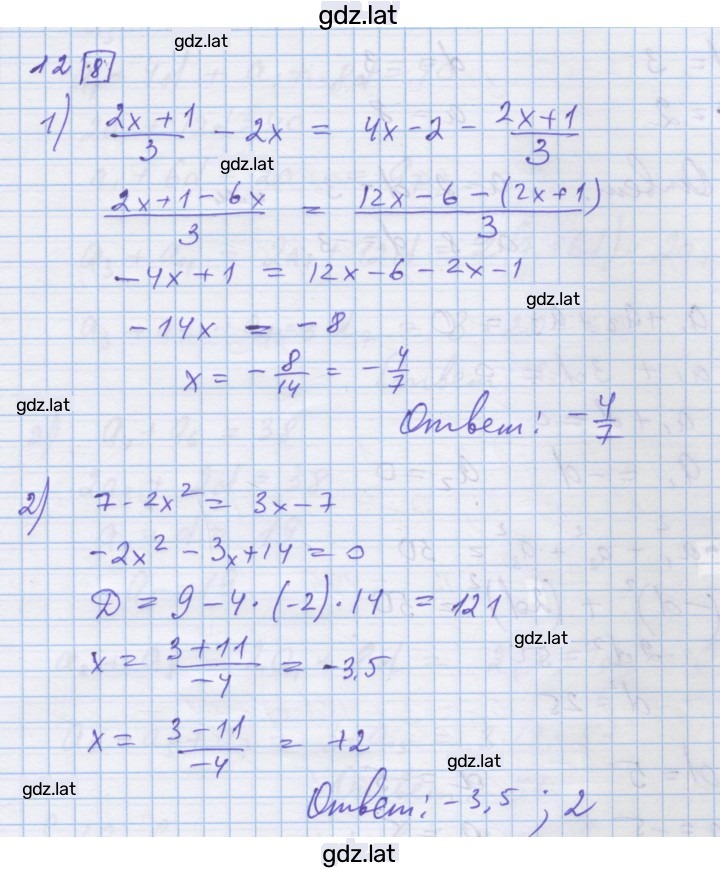 gdz.lat
gdz.lat
12 [8]
1) (2x + 1)/3 - 2x = 4x - 2 - (2x + 1)/3
gdz.lat
(2x + 1 - 6x)/3 = (12x - 6 - (2x + 1))/3
-4x + 1 = 12x - 6 - 2x - 1
gdz.lat
-14x = -8
x = -8/14 = -4/7
gdz.lat
Ответ: -4/7
2) 7 - 2x² = 3x - 7
-2x² - 3x + 14 = 0
Д = 9 - 4 · (-2) · 14 = 121
gdz.lat
x = (3 + 11)/-4 = -3,5
x = (3 - 11)/-4 = +2
gdz.lat
gdz.lat
Ответ: -3,5 ; 2
gdz.lat